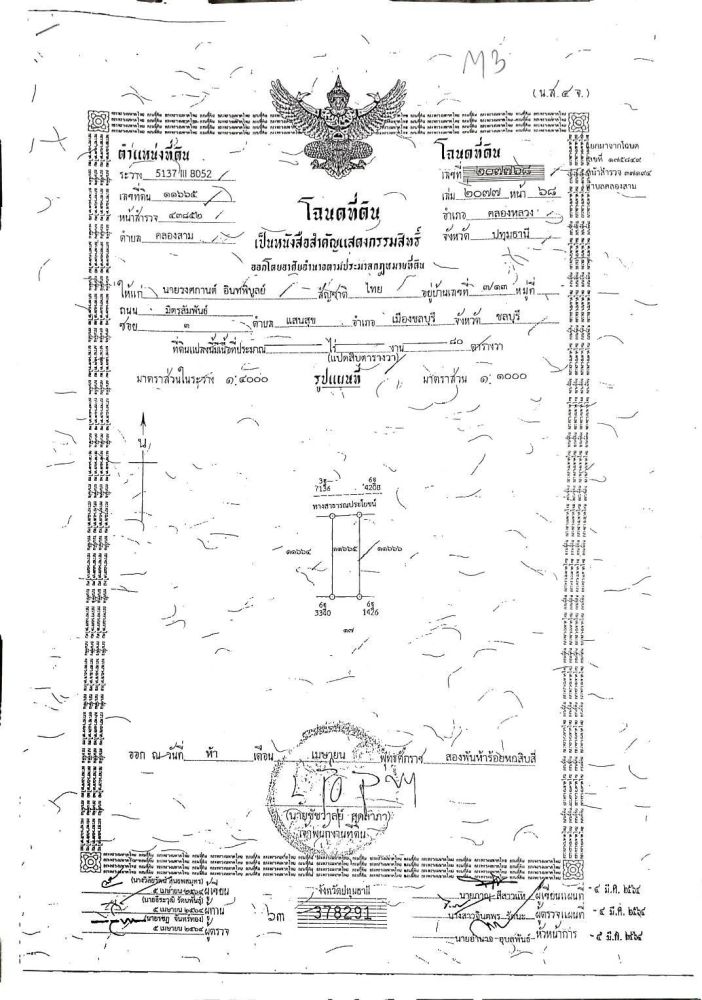 M3
(น.ส. ๔ จ.)
ตำแหน่งที่ดิน
ระวาง 5137 III 8052
เลขที่ดิน ๑๑๖๖๕
หน้าสำรวจ ๔๓๘๕๒
ตำบล คลองสาม
โฉนดที่ดิน
เลขที่ ๒๐๗๗๖๘
เล่ม ๒๐๗๗ หน้า ๖๘
อำเภอ คลองหลวง
จังหวัด ปทุมธานี
แยกมาจากโฉนด
เลขที่ ๑๗๕๘๔๙
หน้าสำรวจ ๓๗๑๙๔
ตำบลคลองสาม
โฉนดที่ดิน
เป็นหนังสือสำคัญแสดงกรรมสิทธิ์
ออกโดยอาศัยอำนาจตามประมวลกฎหมายที่ดิน
ให้แก่ นายวงศกานต์ อินทพิบูลย์ สัญชาติ ไทย อยู่บ้านเลขที่ ๗/๑๓ หมู่ที่
ถนน มิตรสัมพันธ์
ซอย ๓ ตำบล แสนสุข อำเภอ เมืองชลบุรี จังหวัด ชลบุรี
ที่ดินแปลงนี้มีเนื้อที่ประมาณ ไร่ งาน ๘๐ ตารางวา
(แปดสิบตารางวา)
มาตราส่วนในระวาง ๑:๔๐๐๐ รูปแผนที่ มาตราส่วน ๑:๑๐๐๐
น
3ฐ 6ฐ
7136 4208
ทางสาธารณประโยชน์
๑๑๖๖๔ ๑๑๖๖๕ ๑๑๖๖๖
6ฐ 6ฐ
3340 1426
๑๗
ออก ณ วันที่ ห้า เดือน เมษายน พุทธศักราช สองพันห้าร้อยหกสิบสี่
เจ้าพนักงานที่ดิน
๕ เมษายน ๒๕๖๔ ผู้เขียน
๕ เมษายน ๒๕๖๔ ผู้ทาน
๕ เมษายน ๒๕๖๔ ผู้ตรวจ
๖๓
จังหวัดปทุมธานี
378291
ผู้เขียนแผนที่ -๔ มี.ค. ๒๕๖๔
ผู้ตรวจแผนที่ -๔ มี.ค. ๒๕๖๔
หัวหน้าการ -๔ มี.ค. ๒๕๖๔